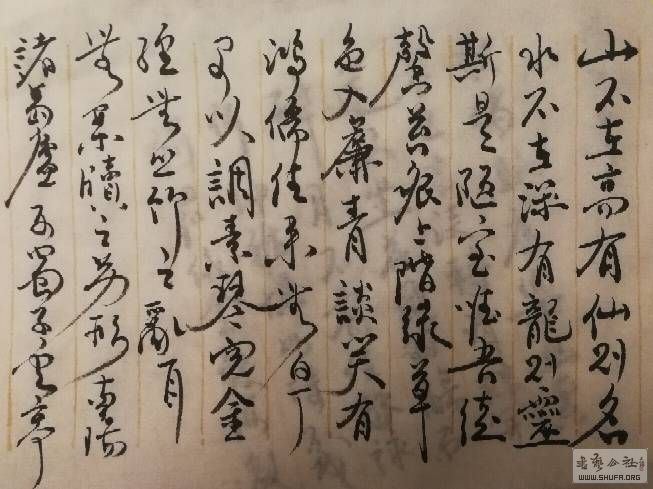 山不在高有仙則名
水不在深有龍則靈
斯是陋室惟吾德
馨苔痕上階綠草
色入簾青談笑有
鴻儒往來無白丁
可以調素琴閱金
經無絲竹之亂耳
無案牘之勞形南陽
諸葛廬西蜀子雲亭
书艺公社
WWW.SHUFA.ORG